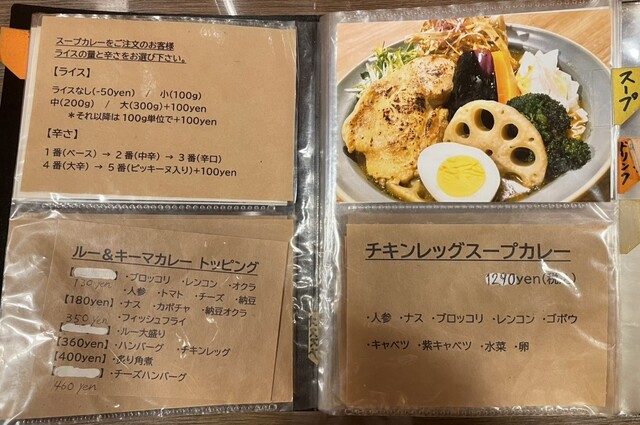 スープカレーをご注文のお客様
ライスの量と辛さをお選び下さい。
【ライス】
ライスなし(-50yen) / 小(100g)
中(200g) / 大(300g)+100yen
*それ以降は100g単位で+100yen
【辛さ】
1番(ベース) → 2番(中辛) → 3番(辛口)
4番(大辛) → 5番(ピッキーヌ入り)+100yen
ルー&キーマカレー トッピング
・ブロッコリ ・レンコン ・オクラ
130yen ・人参 ・トマト ・チーズ ・納豆
【180yen】・ナス ・カボチャ ・納豆オクラ
350yen ・フィッシュフライ
・ルー大盛り
【360yen】・ハンバーグ ・チキンレッグ
【400yen】・炙り角煮
・チーズハンバーグ
460yen
チキンレッグスープカレー
1290yen(税
・人参 ・ナス ・ブロッコリ ・レンコン ・ゴボウ
・キャベツ ・紫キャベツ ・水菜 ・卵
スープ
ドリンク